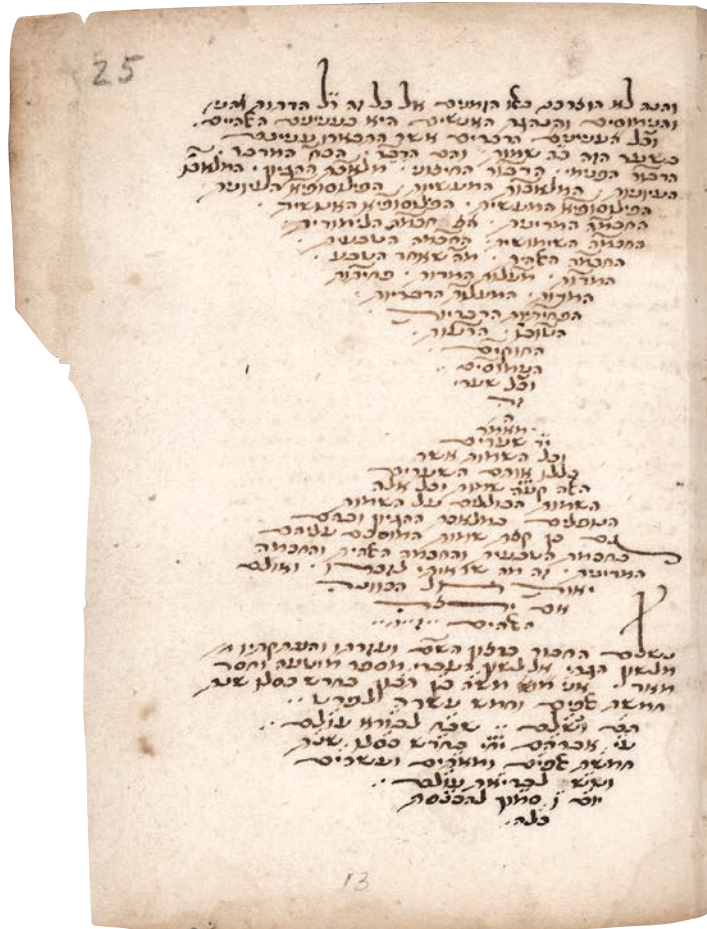 25
והנה לא הוצרכו באלו הזמנים אל כל זה ר״ל הדתות
והנימוסים והנהגת האנשים היא בענינים האלהיים.
וכל הענינים הדברים אשר התבארו עניניהם
בשער הזה כה שמות. והם הדבר. הכח המדבר.
הדבור הפנימי. הדבור החיצוני. מלאכת ההגיון. המלאכות
העיוניות. המלאכות המעשיות. הפילוסופיא העיונית.
הפילוסופיא המעשית. הפילוסופיא האנושית.
החכמה המדינית. החכמה הלימודית.
החכמה השימושית. החכמה הטבעית.
החכמה האלהית. מה שאחר הטבע.
המדות. מעלות המדות. פחיתות
המדות. המעלות הדבריות.
הפחיתיות הדבריות.
הטובות. הרעות.
החוקים.
הנימוסים.
וכל שערי
זה
ה
מאמר
יד שערים
וכל השמות אשר
כללו אותם השערים
האלה קעה שמות וכל אלה
השמות הכוללים על השמות
הנופלים במלאכת ההגיון ובהם
גם כן קצת שמות המוסכם עליהם
בחכמה הטבעית והחכמה האלהית והחכמה
המדינית. זה מה שראיתי לזכרו. ואולם
יאות לכל הכוונה
אם ירצה
האלהים
נשלם החבור ברצון השם ועזרתו והעתקתיו
מלשון הגרי אל לשון העברי מספר מוטעה וחסר
מאד. אני משה בן תבון בחדש כסלו שנת
חמשת אלפים וחמש עשרה לפרט
תם ונשלם שבח לבורא עולם
ע״י אברהם בחדש כסלו שנת
חמשת אלפים ומאתים ועשרים
ושש לבריאת עולם
יום ו סמוך להכנסת
כלה.
13